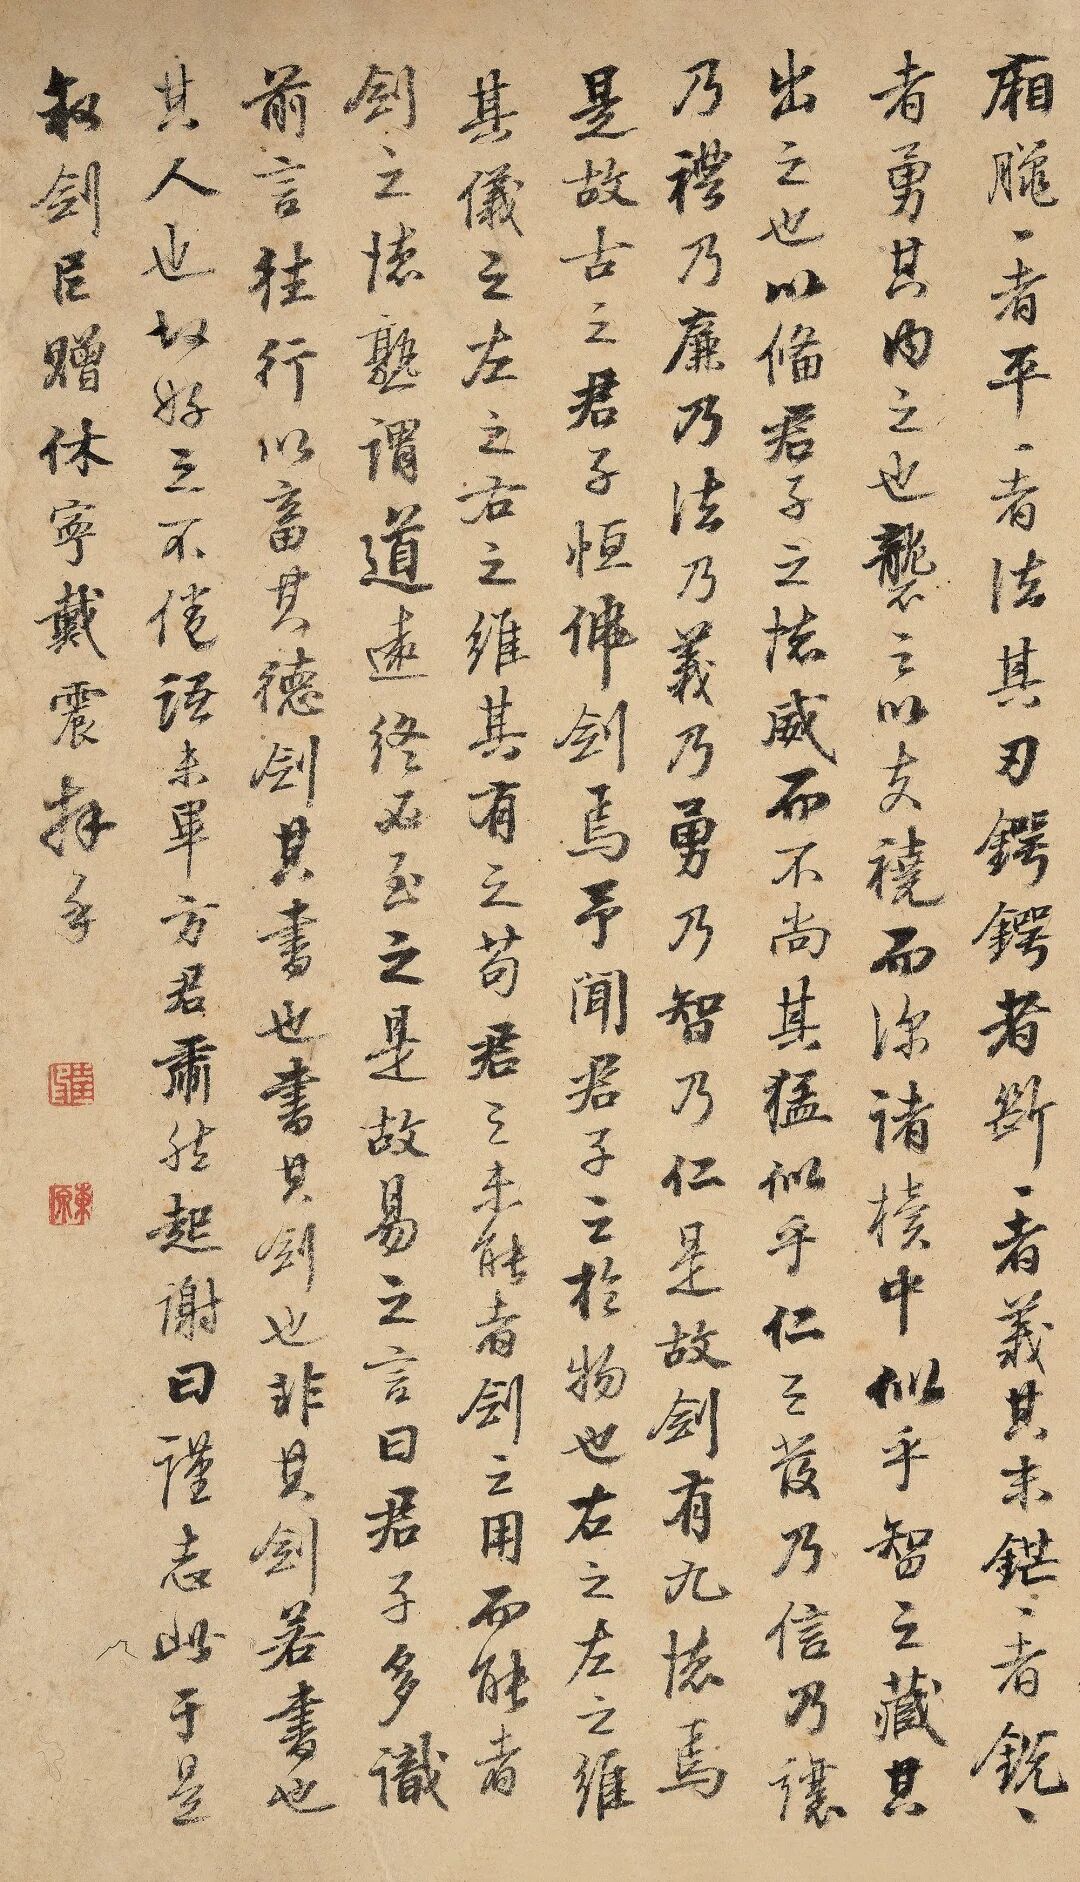 廂臘〻者平〻者法其刃鍔鍔者斷〻者義其末鋩〻者銳〻
者勇其內之也襲之以支襓而深諸櫝中似乎智之藏其
出之也以備君子之德威而不尚其猛似乎仁之發乃信乃讓
乃禮乃廉乃法乃義乃勇乃智乃仁是故劍有九德焉
是故古之君子恒佩劍焉予聞君子之於物也右之左之維
其儀之左之右之維其有之苟君之未能者劍之用而能者
劍之德孰謂道遠終必至之是故易之言曰君子多識
前言往行以畜其德劍其書也書其劍也非其劍若書也
其人也故好之不倦語未畢方君肅然起謝曰謹志此于是
敘劍臣贈休寧戴震拜手
戴震
東原